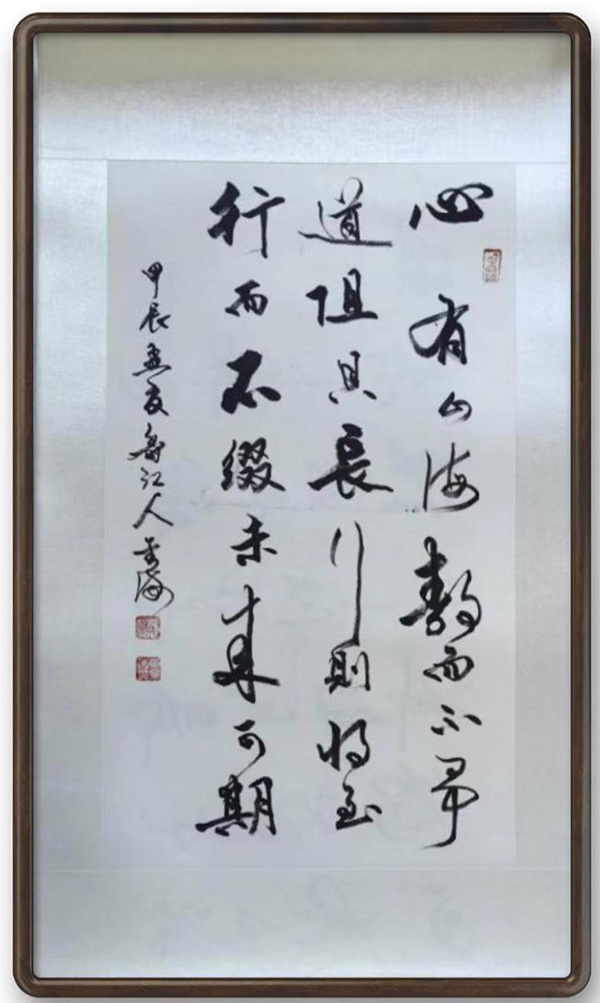 心有山海静而不争
道阻且長行則将至
行而不缀未来可期
甲辰孟夏江人海